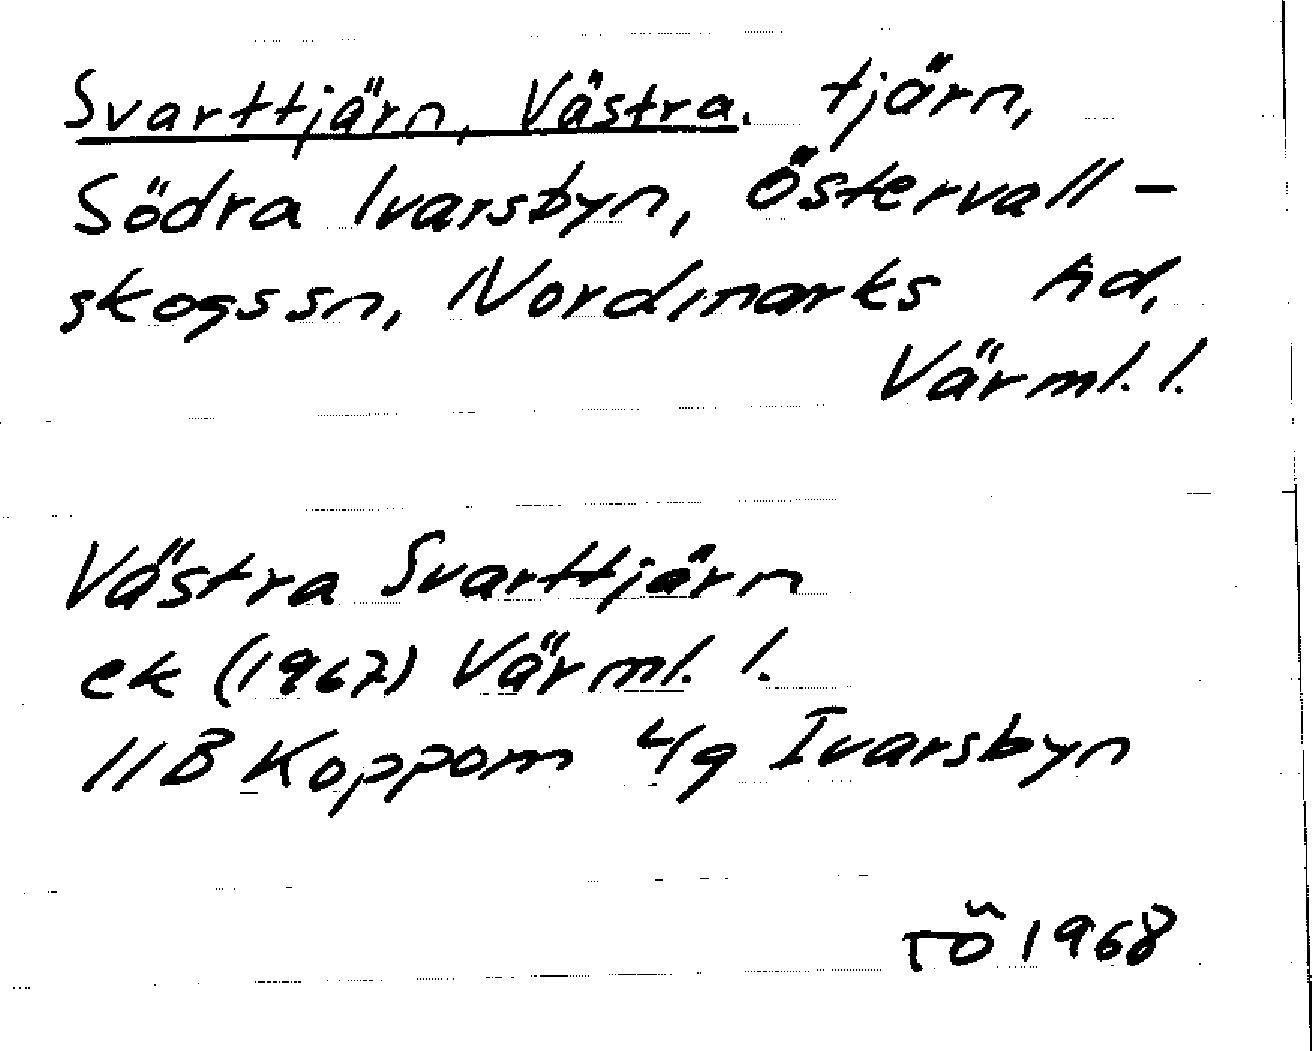 Svarttjärn, Västra. tjärn,
Södra Ivarsbyn, Östervall-
skogs sn, Nordmarks hd,
Värml. l.
Västra Svarttjärn
ek (1967) Värml. l.
11B Koppom 4g Ivarsbyn
TÖ 1968